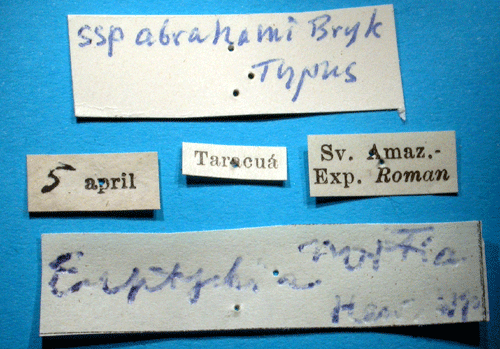 ssp abrahami Bryk
Typus
5 april
Taracuá
Sv. Amaz.-
Exp. Roman
Euptychia